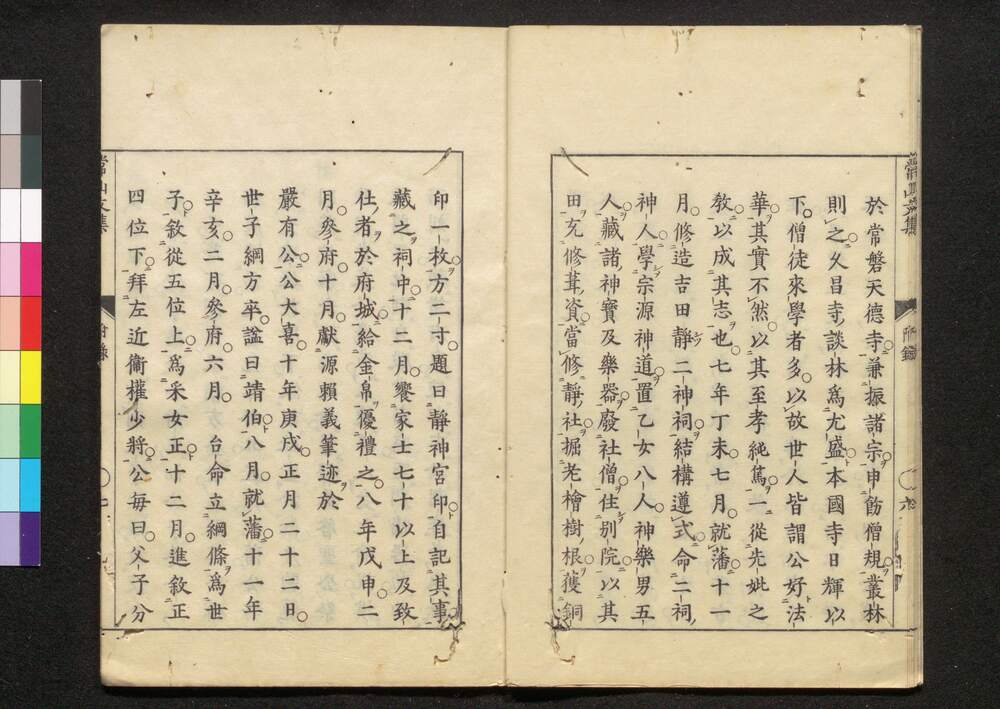 常山文集
附錄
六
於常磐天德寺兼振諸宗申飭僧規叢林
則之久昌寺談林爲尤盛本國寺日輝以
下僧徒來學者多以故世人皆謂公好法
華其實不然以其至孝純篤一從先妣之
教以成其志也七年丁未七月就藩十一
月修造吉田靜二神祠結構遵式命二祠
神人學宗源神道置乙女八人神樂男五
人藏諸神寶及樂器廢社僧住別院以其
田充修葺資當修靜社掘老檜樹根獲銅
印一枚方二寸題曰靜神宮印自記其事
藏之祠中十二月饗家士七十以上及致
仕者於府城給金帛優禮之八年戊申二
月參府十月獻源賴義筆迹於
嚴有公公大喜十年庚戌正月二十二日
世子綱方卒諡曰靖伯八月就藩十一年
辛亥二月參府六月台命立綱條爲世
子敘從五位上爲采女正十二月進敘正
四位下拜左近衞權少將公每曰父子分
常山文集
附錄
七